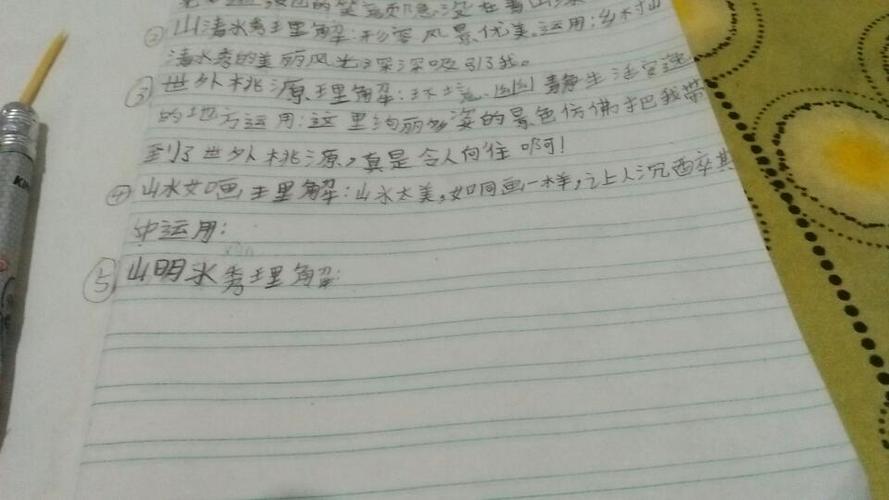 的笑
②山清水秀理解:形容风景优美。运用:乡村山
清水秀的美丽风光深深吸引了我。
③世外桃源理解:环境幽静生活安逸
的地方运用:这里绚丽多姿的景色仿佛把我带
到了世外桃源,真是令人向往啊!
④山水如画理解:山水太美,如同画一样,让人沉醉其
中运用:
⑤山明水秀理解: